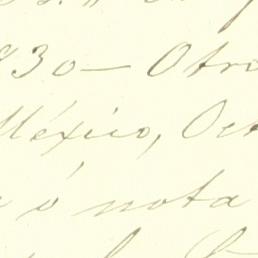 930— Otro
México, Oct
ó nota